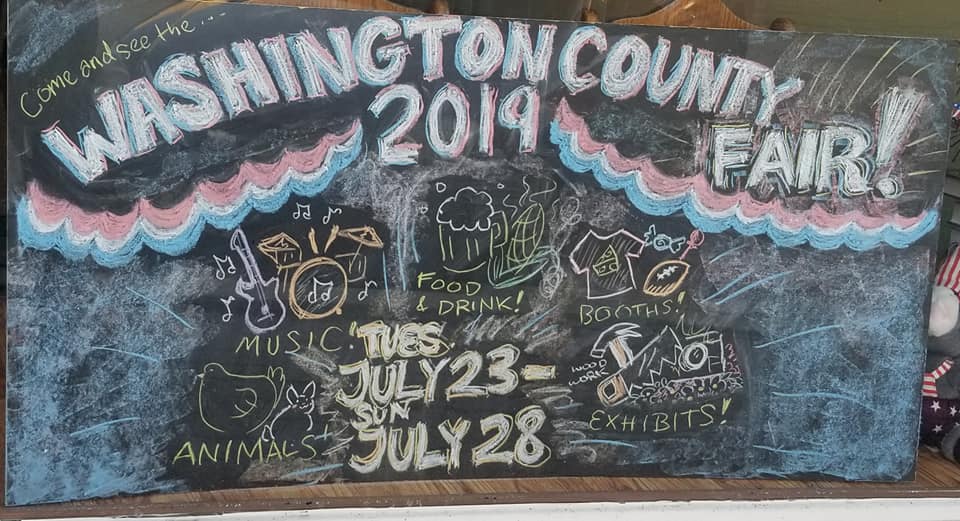 Come and see the...
WASHINGTON COUNTY
FAIR!
2019
MUSIC
FOOD
& DRINK!
BOOTHS!
TUES
JULY 23 -
SUN
JULY 28
ANIMALS!
WOOD
WORK
EXHIBITS!